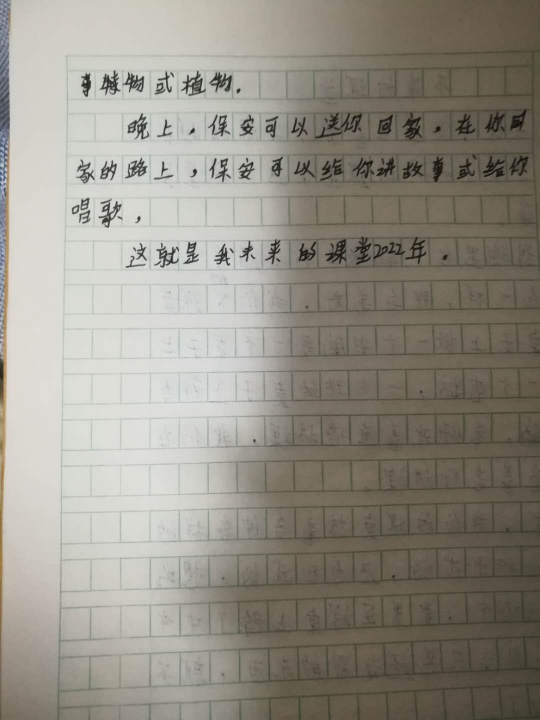 特物或植物.
晚上,保安可以送你回家,在你回
家的路上,保安可以给你讲故事或给你
唱歌,
这就是我未来的课堂2022年.